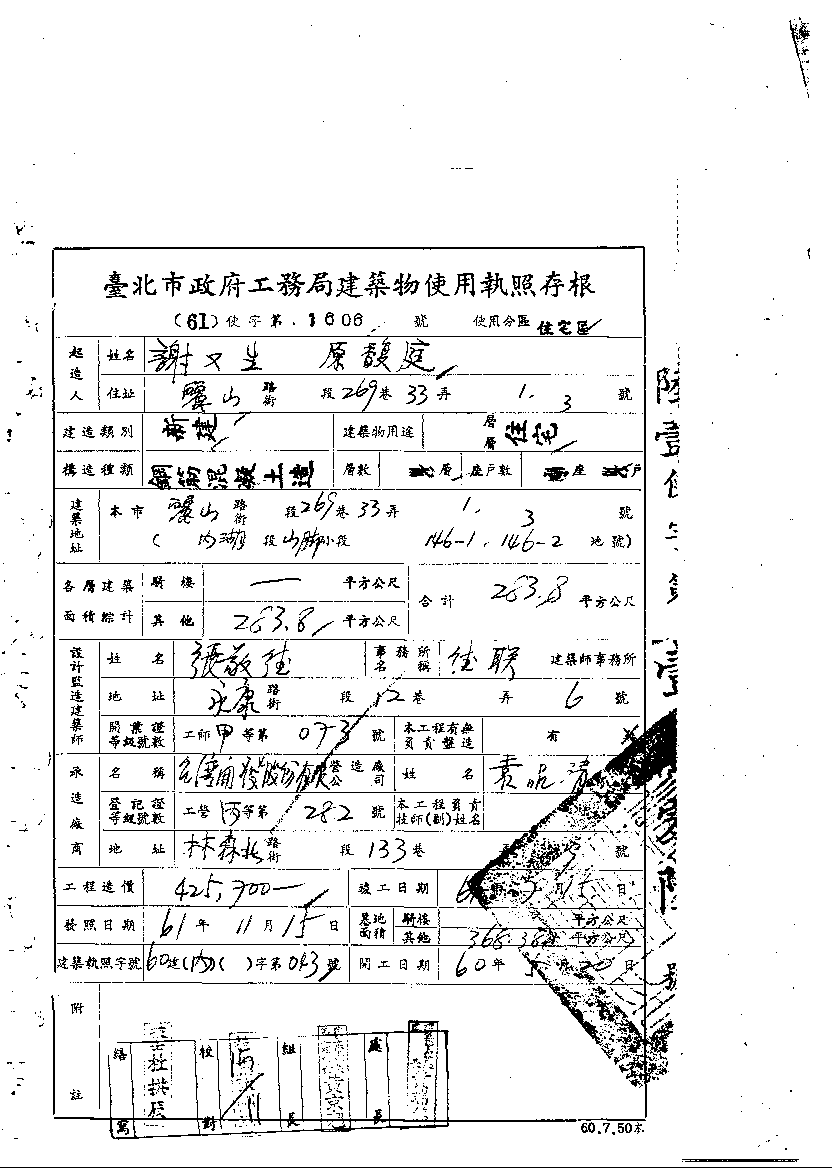 臺北市政府工務局建築物使用執照存根
(61)使字第 1606 號 使用分區 住宅區
起造人 姓名 謝又生 原馥庭
住址 麗山 路街 段 269 巷 33 弄 1. 3 號
建造類別 新建 建築物用途 層層 住宅
構造種類 鋼筋混凝土造 層數 層 座戶數 座 戶
建築地址 本市 麗山 路街 段 269 巷 33 弄 1. 3 號
( 內湖 段 山腳 小段 146-1. 146-2 地號)
各層建築面積綜計 騎樓 — 平方公尺 合計 283.8 平方公尺
其他 283.8 平方公尺
設計監造建築師 姓名 張敬 事務所名稱 佳聯 建築師事務所
地址 永康 路街 段 12 巷 弄 6 號
開業證等級號數 工師 甲 等第 073 號 本工程有無負責監造 有
承造廠商 名稱 股份有限 營造廠公司 姓名 袁 清
登記證等級號數 工營 丙 等第 282 號 本工程負責技師(副)姓名
地址 林森北 路街 段 133 巷 號
工程造價 425,700— 竣工日期 年 月 15 日
發照日期 61 年 11 月 15 日 基地面積 騎樓 平方公尺
其他 368.38 平方公尺
建築執照字號 60 建(內)( )字第 043 號 開工日期 60 年 月 20 日
附註
繕寫 校對 組長 處長
60.7.50本